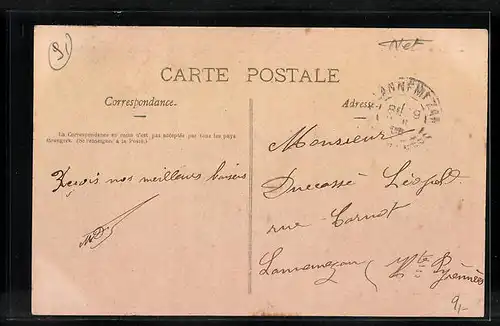 Net
CARTE POSTALE
Correspondance.
Adresse
La Correspondance au recto n'est pas acceptée par tous les pays
étrangers. (Se renseigner à la Poste).
LANNEMEZAN
Monsieur
Ducassé Léopold
rue Carnot
Lannemezan (Htes Pyrénées
Reçois nos meilleurs baisers
9,-